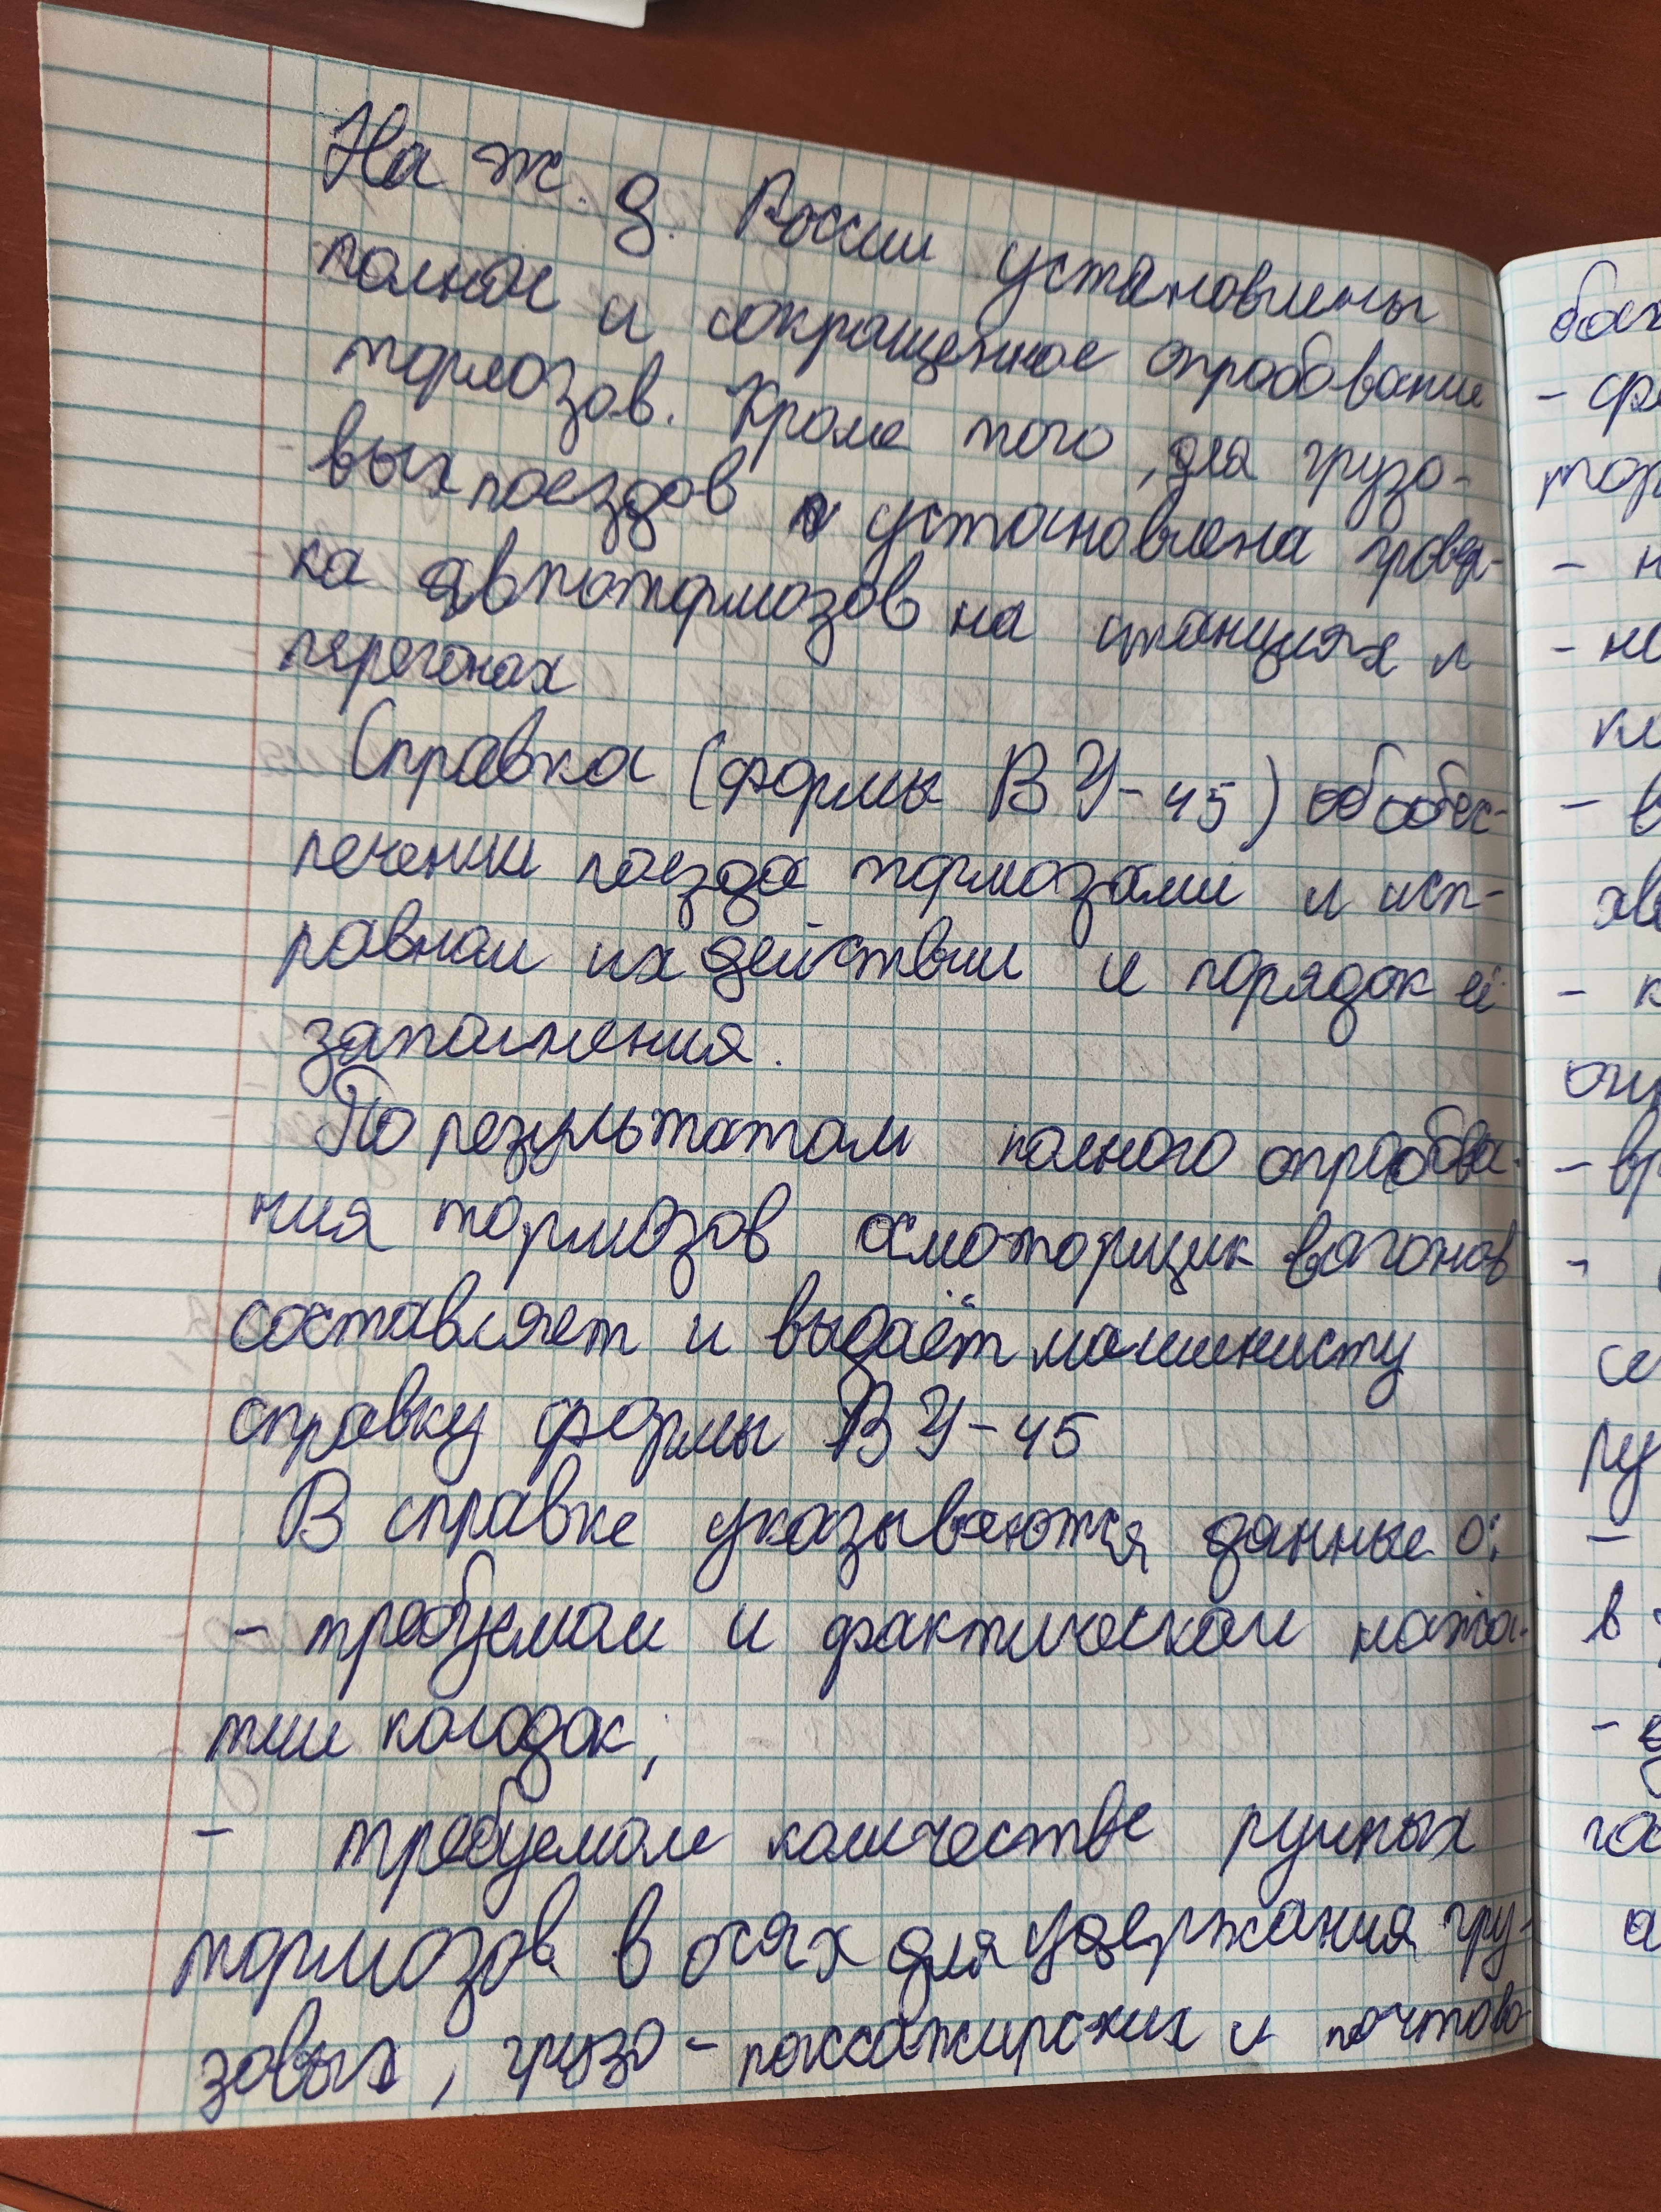 На ж. д. России установлены
полное и сокращенное опробование
тормозов. Кроме того, для грузо-
вых поездов установлена провер-
ка автотормозов на станциях и
перегонах
Справка (формы ВУ-45) об обес-
печении поезда тормозами и исп-
равном их действии и порядок её
заполнения.
По результатам полного опробова-
ния тормозов осмоторщик вагонов
составляет и выдаёт машинисту
справку формы ВУ-45
В справке указываются данные о:
- требуемом и фактическом нажа-
тии колодок;
- требуемом количестве ручных
тормозов в осях для удержания гру-
зовых, грузо-пассажирских и почтово-